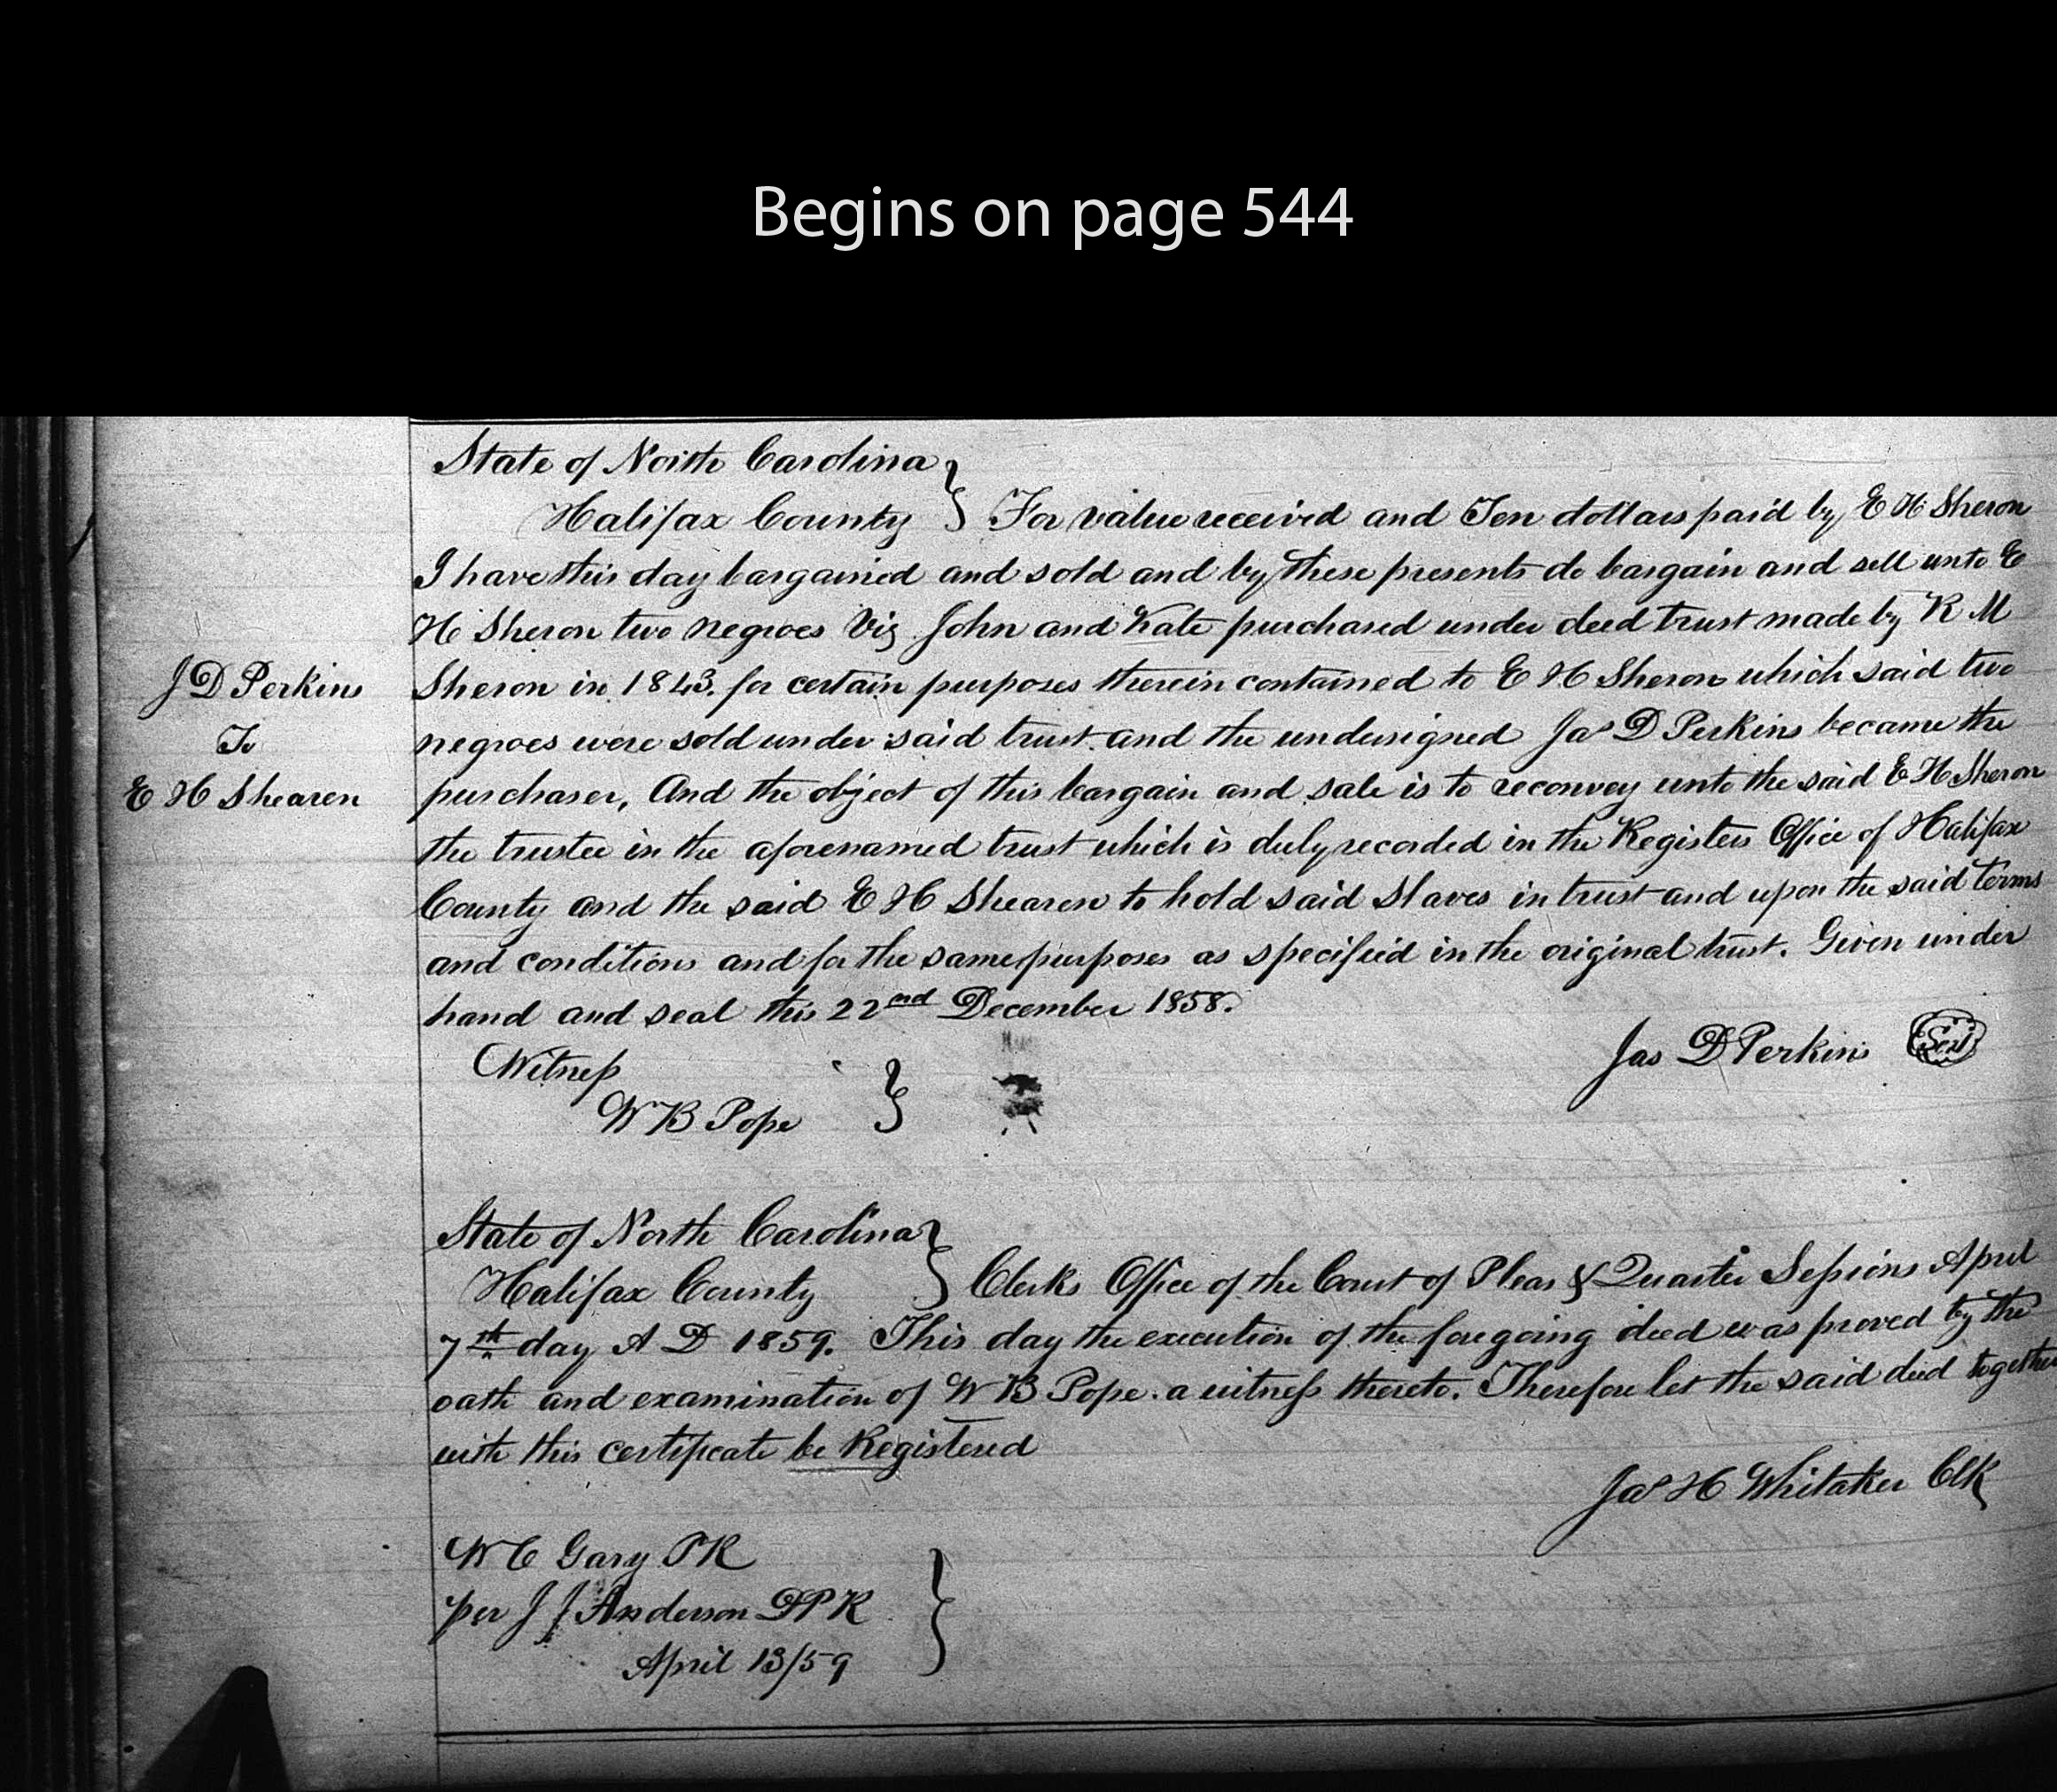 Begins on page 544
State of North Carolina
Halifax County } For value received and Ten dollars paid by E H Sheron
I have this day bargained and sold and by these presents do bargain and sell unto E
H Sheron two negroes Viz John and Kate purchased under deed trust made by R M
J D Perkins
To
E H Shearen
Sheron in 1843. for certain purposes therein contained to E H Sheron which said two
negroes were sold under said trust and the undersigned Jas D Perkins became the
purchaser, And the object of this bargain and sale is to reconvey unto the said E H Sheron
the trustee in the aforenamed trust which is duly recorded in the Registers Office of Halifax
County and the said E H Shearen to hold said Slaves in trust and upon the said terms
and conditions and for the same purposes as specified in the original trust. Given under
hand and seal this 22nd December 1858.
Jas D Perkins Seal
Witness
W B Pope }
State of North Carolina
Halifax County } Clerks Office of the Court of Pleas & Quarter Sessions April
7th day A D 1859. This day the execution of the foregoing deed was proved by the
oath and examination of W B Pope a witness thereto. Therefore let the said deed together
with this certificate be Registered
Jas H Whitaker Clk
W C Gary P R
per J J Anderson D P R }
April 13/59